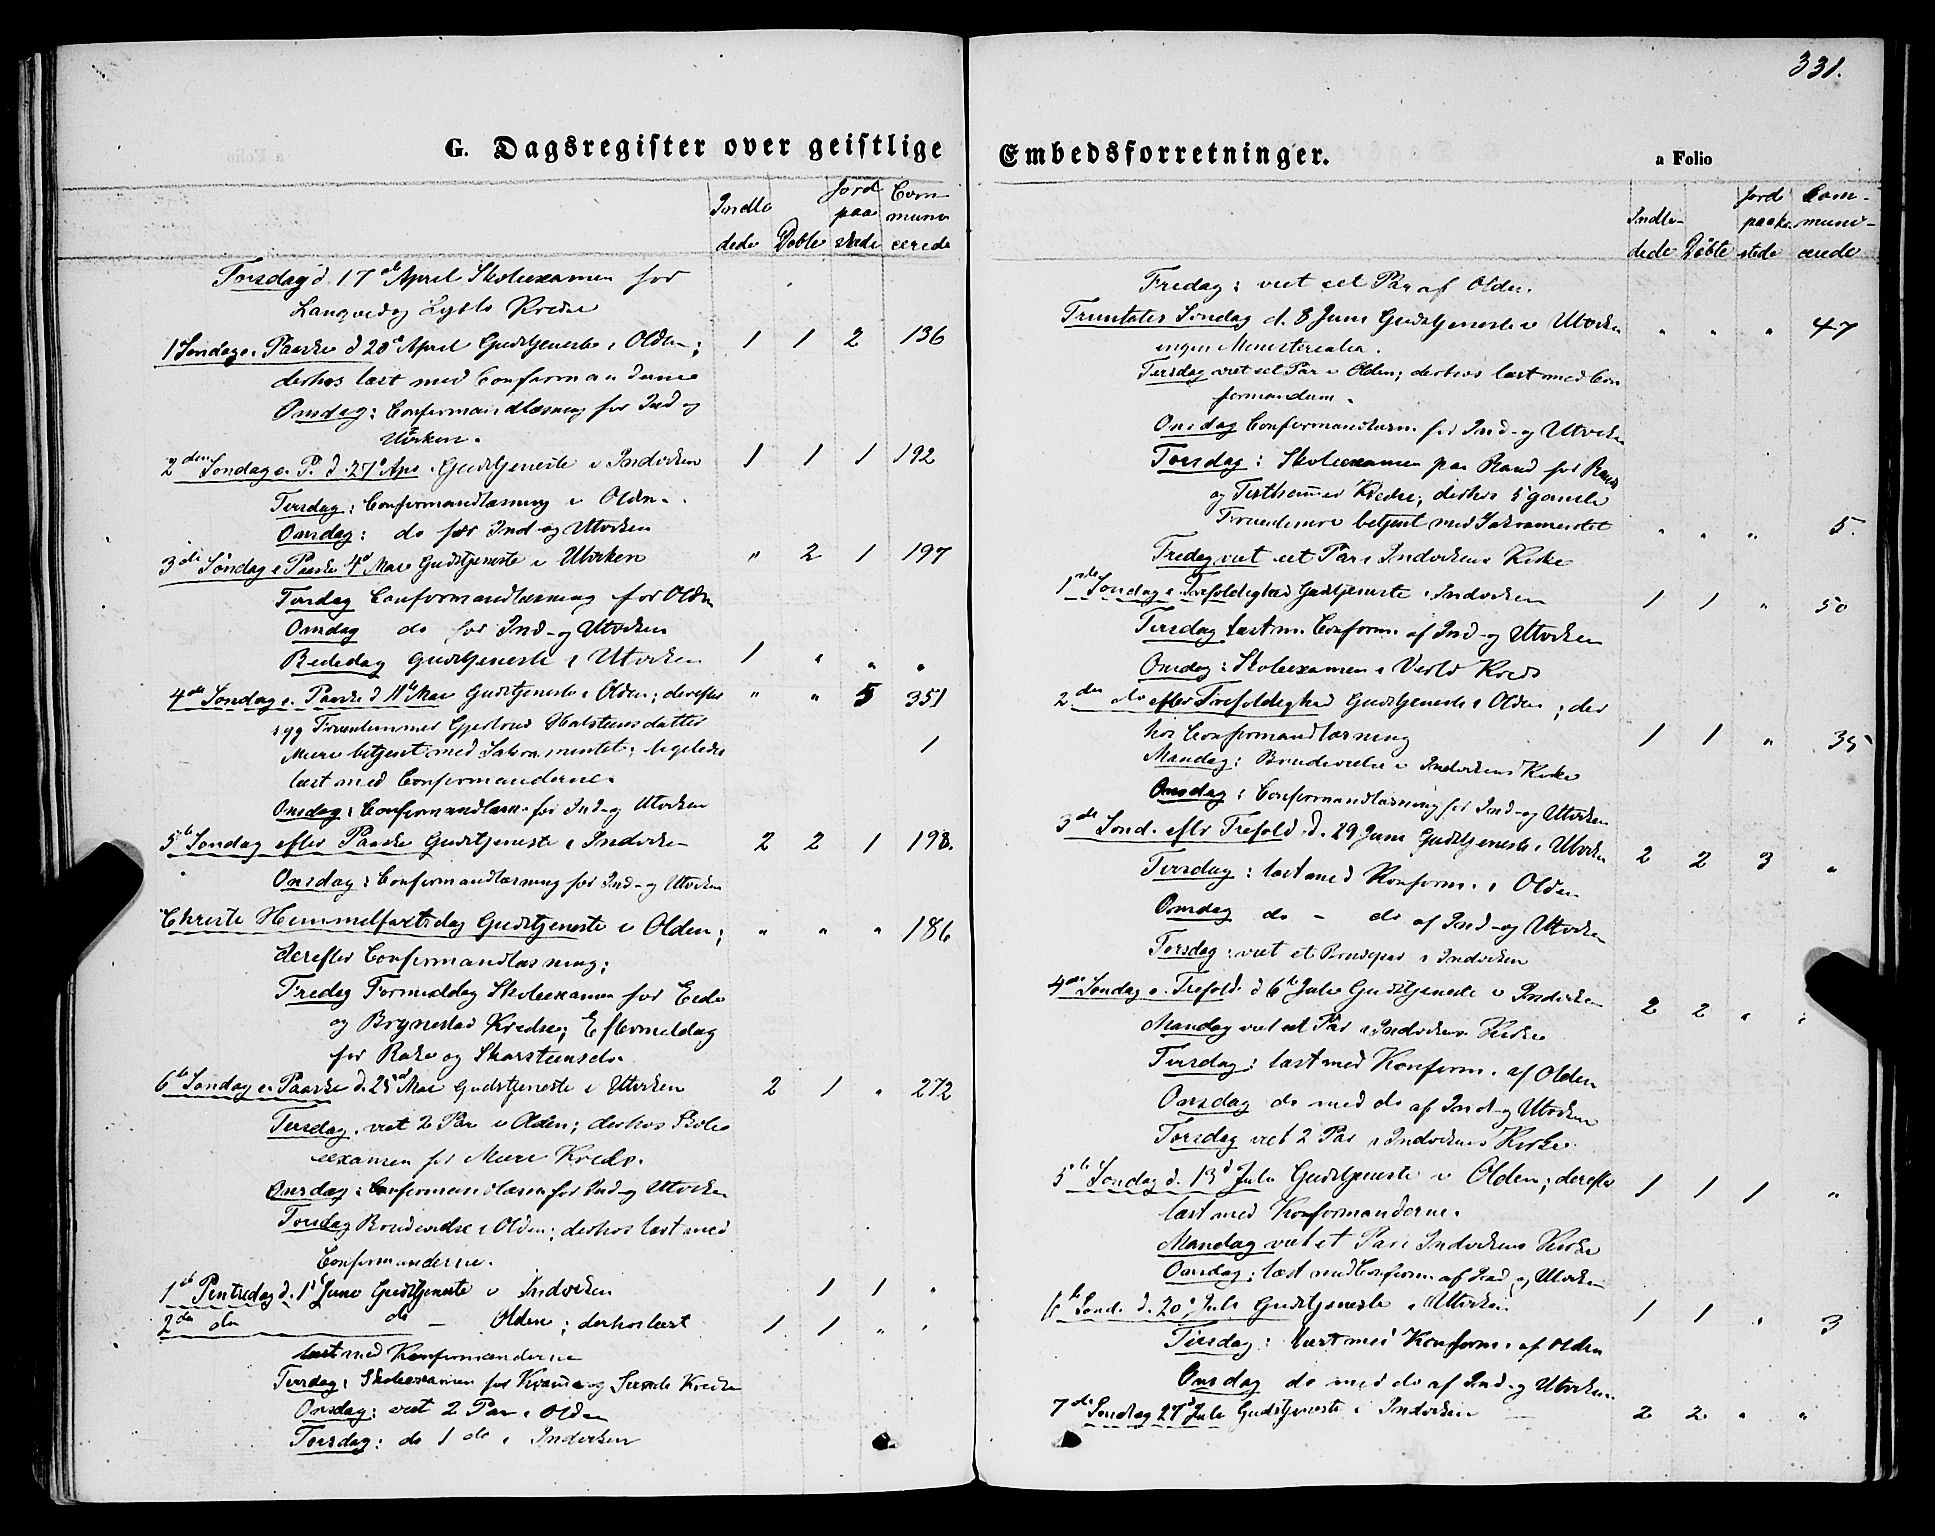 331.
G. Dagsregister over geistlige
Embedsforretninger.
a Folio
Indle Jord Com-
paa muni
dede Døbte stede cerede
Torsdag d. 17de April Skoleexamen for
Langved og Kredse
1 Søndag e. Paaske d 20de April Gudstjeneste i Olden; 1 1 2 136
derhos læst med Confirmanderne
Onsdag: Confirmandlæsning for Ind og
Utviken.
2den Søndag e. P. d. 27de Apr. Gudstjeneste i Indviken 1 1 1 192
Tirsdag: Confirmandlæsning i Olden.
Onsdag: do for Ind- og Utviken
3die Søndag e Paaske 4de Mai Gudstjeneste i Utviken " 2 1 197
Tirsdag Confirmandlæsning for Olden
Onsdag do for Ind- og Utviken
Bededag Gudstjeneste i Utviken 1 " " "
4de Søndag e. Paaske d 11te Mai Gudstjeneste i Olden; derefter " " 5 351
syg Fruentimmer Gjertrud Halstensdatter
Muri betjent med Sakramentet; ligeledes 1
læst med Confirmanderne.
Onsdag: Confirmandlæsn. for Ind- og Utviken
5te Søndag efter Paaske Gudstjeneste i Indviken 2 2 1 198.
Onsdag: Confirmandlæsning for Ind- og Utviken
Christi Himmelfartsdag Gudstjeneste i Olden; " " " 186
derefter Confirmandlæsning;
Fredag Formiddag Skoleexamen for Eide
og Brynestad Kredse; Eftermiddag
for Rake og Skarstensdn.
6te Søndag e. Paaske d. 25de Mai Gudstjeneste i Utviken 2 1 " 272
Tirsdag, viet 2 Par i Olden; derhos Skole
examen for Muri Kreds.
Onsdag: Confirmandlæsn for Ind- og Utviken
Torsdag Brudevielse i Olden; derhos læst med
Confirmanderne.
1ste Pintsedag d. 1ste Juni Gudstjeneste i Indviken 1 1 "
2den do do – Olden; derhos læst 1 1 " "
læst med Konfirmanderne
Tirsdag: Skoleexamen for og Kredse
Onsdag: viet 2 Par i Olden
Torsdag: do 1 do i Indviken
Indle- Jord Com-
paaka muni-
dede Døbte stede cerede
Fredag: viet eet Par af Olden.
Trinitatis Søndag d. 8 Juni Gudstjeneste i Utviken " " " 47
ingen Ministerialia.
Tirsdag viet eet Par i Olden; derhos læst med Con
firmandern.
Onsdag Confirmandlæsn. for Ind- og Utviken
Torsdag: Skoleexamen paa Rand for Rand
og Kredse; derhos 5 gamle
Fruentimre betjent med Sakramentet " " " 5.
Fredag viet eet Par i Indvikens Kirke
1ste Søndag e. Trefoldighed Gudstjeneste i Indviken 1 1 " 50
Tirsdag læst m. Confirm. af Ind- og Utviken
Onsdag: Skoleexamen i Kreds
2den do efter Trefoldighed Gudstjeneste i Olden; der
hos Confirmandlæsning 1 1 " 35
Mandag: Brudevielse i Indvikens Kirke
Onsdag: Confirmandlæsning for Ind- og Utviken
3die Sønd. eftr Trefold. d. 29 Juni Gudstjeneste i Utviken 2 2 3 "
Tirsdag: læst med Konfirm. i Olden
Onsdag do – do af Ind- og Utviken
Torsdag: viet et Brudepar i Indviken
4de Søndag e. Trefold. d 6te Juli Gudstjeneste i Indviken 2 2 " "
Mandag viet et Par i Indvikens Kirke
Tirsdag: læst med Konfirm. af Olden
Onsdag do med do af Ind- og Utviken
Torsdag viet 2 Par i Indvikens Kirke.
5te Søndag d. 13de Juli Gudstjeneste i Olden; derefter 1 1 1 "
læst med Konfirmanderne.
Mandag viet et Par i Indvikens Kirke
Onsdag: læst med Confirm. af Ind- og Utviken
6te Sønd. d. 20de Juli Gudstjeneste i Utviken 1 1 " 3
Tirsdag: læst med Konfirm. af Olden
Onsdag do med do af Ind- og Utviken.
7de Søndag 27de Juli Gudstjeneste i Indviken 2 2 " "